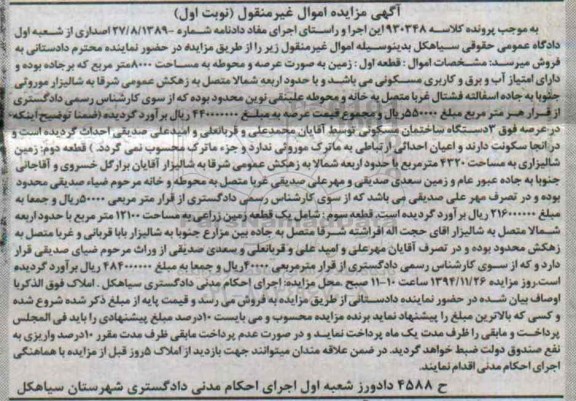 آگهی مزایده اموال غیرمنقول (نوبت اول)
به موجب پرونده کلاسه ۹۳۰۳۴۸ این اجرا و راستای اجرای مفاد دادنامه شماره - ۲۷/۸/۱۳۸۹ اصداری از شعبه اول
دادگاه عمومی حقوقی سیاهکل بدینوسیله اموال غیرمنقول زیر را از طریق مزایده در حضور نماینده محترم دادستانی به
فروش میرسد: مشخصات اموال: قطعه اول: زمین به صورت عرصه و محوطه به مساحت ۸۰۰۰ متر مربع که برجاده بوده و
دارای امتیاز آب و برق و کاربری مسکونی می باشد و با حدود اربعه شمالا متصل به زهکش عمومی شرقا به شالیزار موروثی
جنوبا به جاده اسفالته فشتال غربا متصل به خانه و محوطه علینقی نوین محدود بوده که از سوی کارشناس رسمی دادگستری
از قرار هر متر مربع مبلغ ۵۵۰۰۰ ریال و مجموع قیمت عرصه به مبلغ ۴۴۰۰۰۰۰۰۰ ریال برآورد گردیده (ضمنا توضیح اینکه:
در عرصه فوق ۳ دستگاه ساختمان مسکونی توسط آقایان محمدعلی و قربانعلی و امیدعلی صدیقی احداث گردیده است و
در انجا سکونت دارند و اعیان احداثی ارتباطی به ماترک موروثی ندارد و جزء ماترک محسوب نمی گردد.) قطعه دوم: زمین
شالیزاری به مساحت ۴۳۲۰ مترمربع با حدود اربعه شمالا به زهکش عمومی شرقا به شالیزار آقایان برارگل خسروی و آقاجانی
جنوبا به جاده عبور عام و زمین سعدی صدیقی و مهرعلی صدیقی غربا متصل به محوطه و خانه مرحوم ضیاء صدیقی محدود
بوده و در تصرف مهر علی صدیقی می باشد که از سوی کارشناس رسمی دادگستری از قرار متر مربعی ۵۰۰۰۰ ریال و جمعا به
مبلغ ۲۱۶۰۰۰۰۰۰ ریال برآورد گردیده است. قطعه سوم: شامل یک قطعه زمین زراعی به مساحت ۱۲۱۰۰ متر مربع با حدود اربعه
شمالا متصل به شالیزار اقای حجت اله افراشته شرقا متصل به جاده بین مزارع جنوبا به شالیزار بابا قربانی و غربا متصل به
زهکش محدود بوده و در تصرف آقایان مهرعلی و امید علی و قربانعلی و سعدی صدیقی از وراث مرحوم ضیای صدیقی قرار
دارد و که از سوی کارشناس رسمی دادگستری از قرار مترمربعی ۴۰۰۰۰ ریال و جمعا به مبلغ ۴۸۴۰۰۰۰۰۰ ریال برآورد گردیده
است. روز مزایده ۱۳۹۴/۱۱/۲۶ ساعت ۱۰-۱۱ صبح محل مزایده: اجرای احکام مدنی دادگستری سیاهکل. املاک فوق الذکر با
اوصاف بیان شده در حضور نماینده دادستانی از طریق مزایده به فروش می رسد و قیمت پایه از مبلغ ذکر شده شروع شده
و کسی که بالاترین مبلغ را پیشنهاد نماید برنده مزایده محسوب و می بایست ۱۰درصد مبلغ پیشنهادی را باید فی المجلس
پرداخت و مابقی را ظرف مدت یک ماه پرداخت نمایند و در صورت عدم پرداخت مابقی ظرف مدت مقرر ۱۰درصد واریزی به
نفع صندوق دولت ضبط خواهد گردید. در ضمن علاقه مندان میتوانند جهت بازدید از املاک ۵روز قبل از مزایده با هماهنگی
اجرای احکام مدنی اقدام نمایند.
ح ۴۵۸۸ دادورز شعبه اول اجرای احکام مدنی دادگستری شهرستان سیاهکل